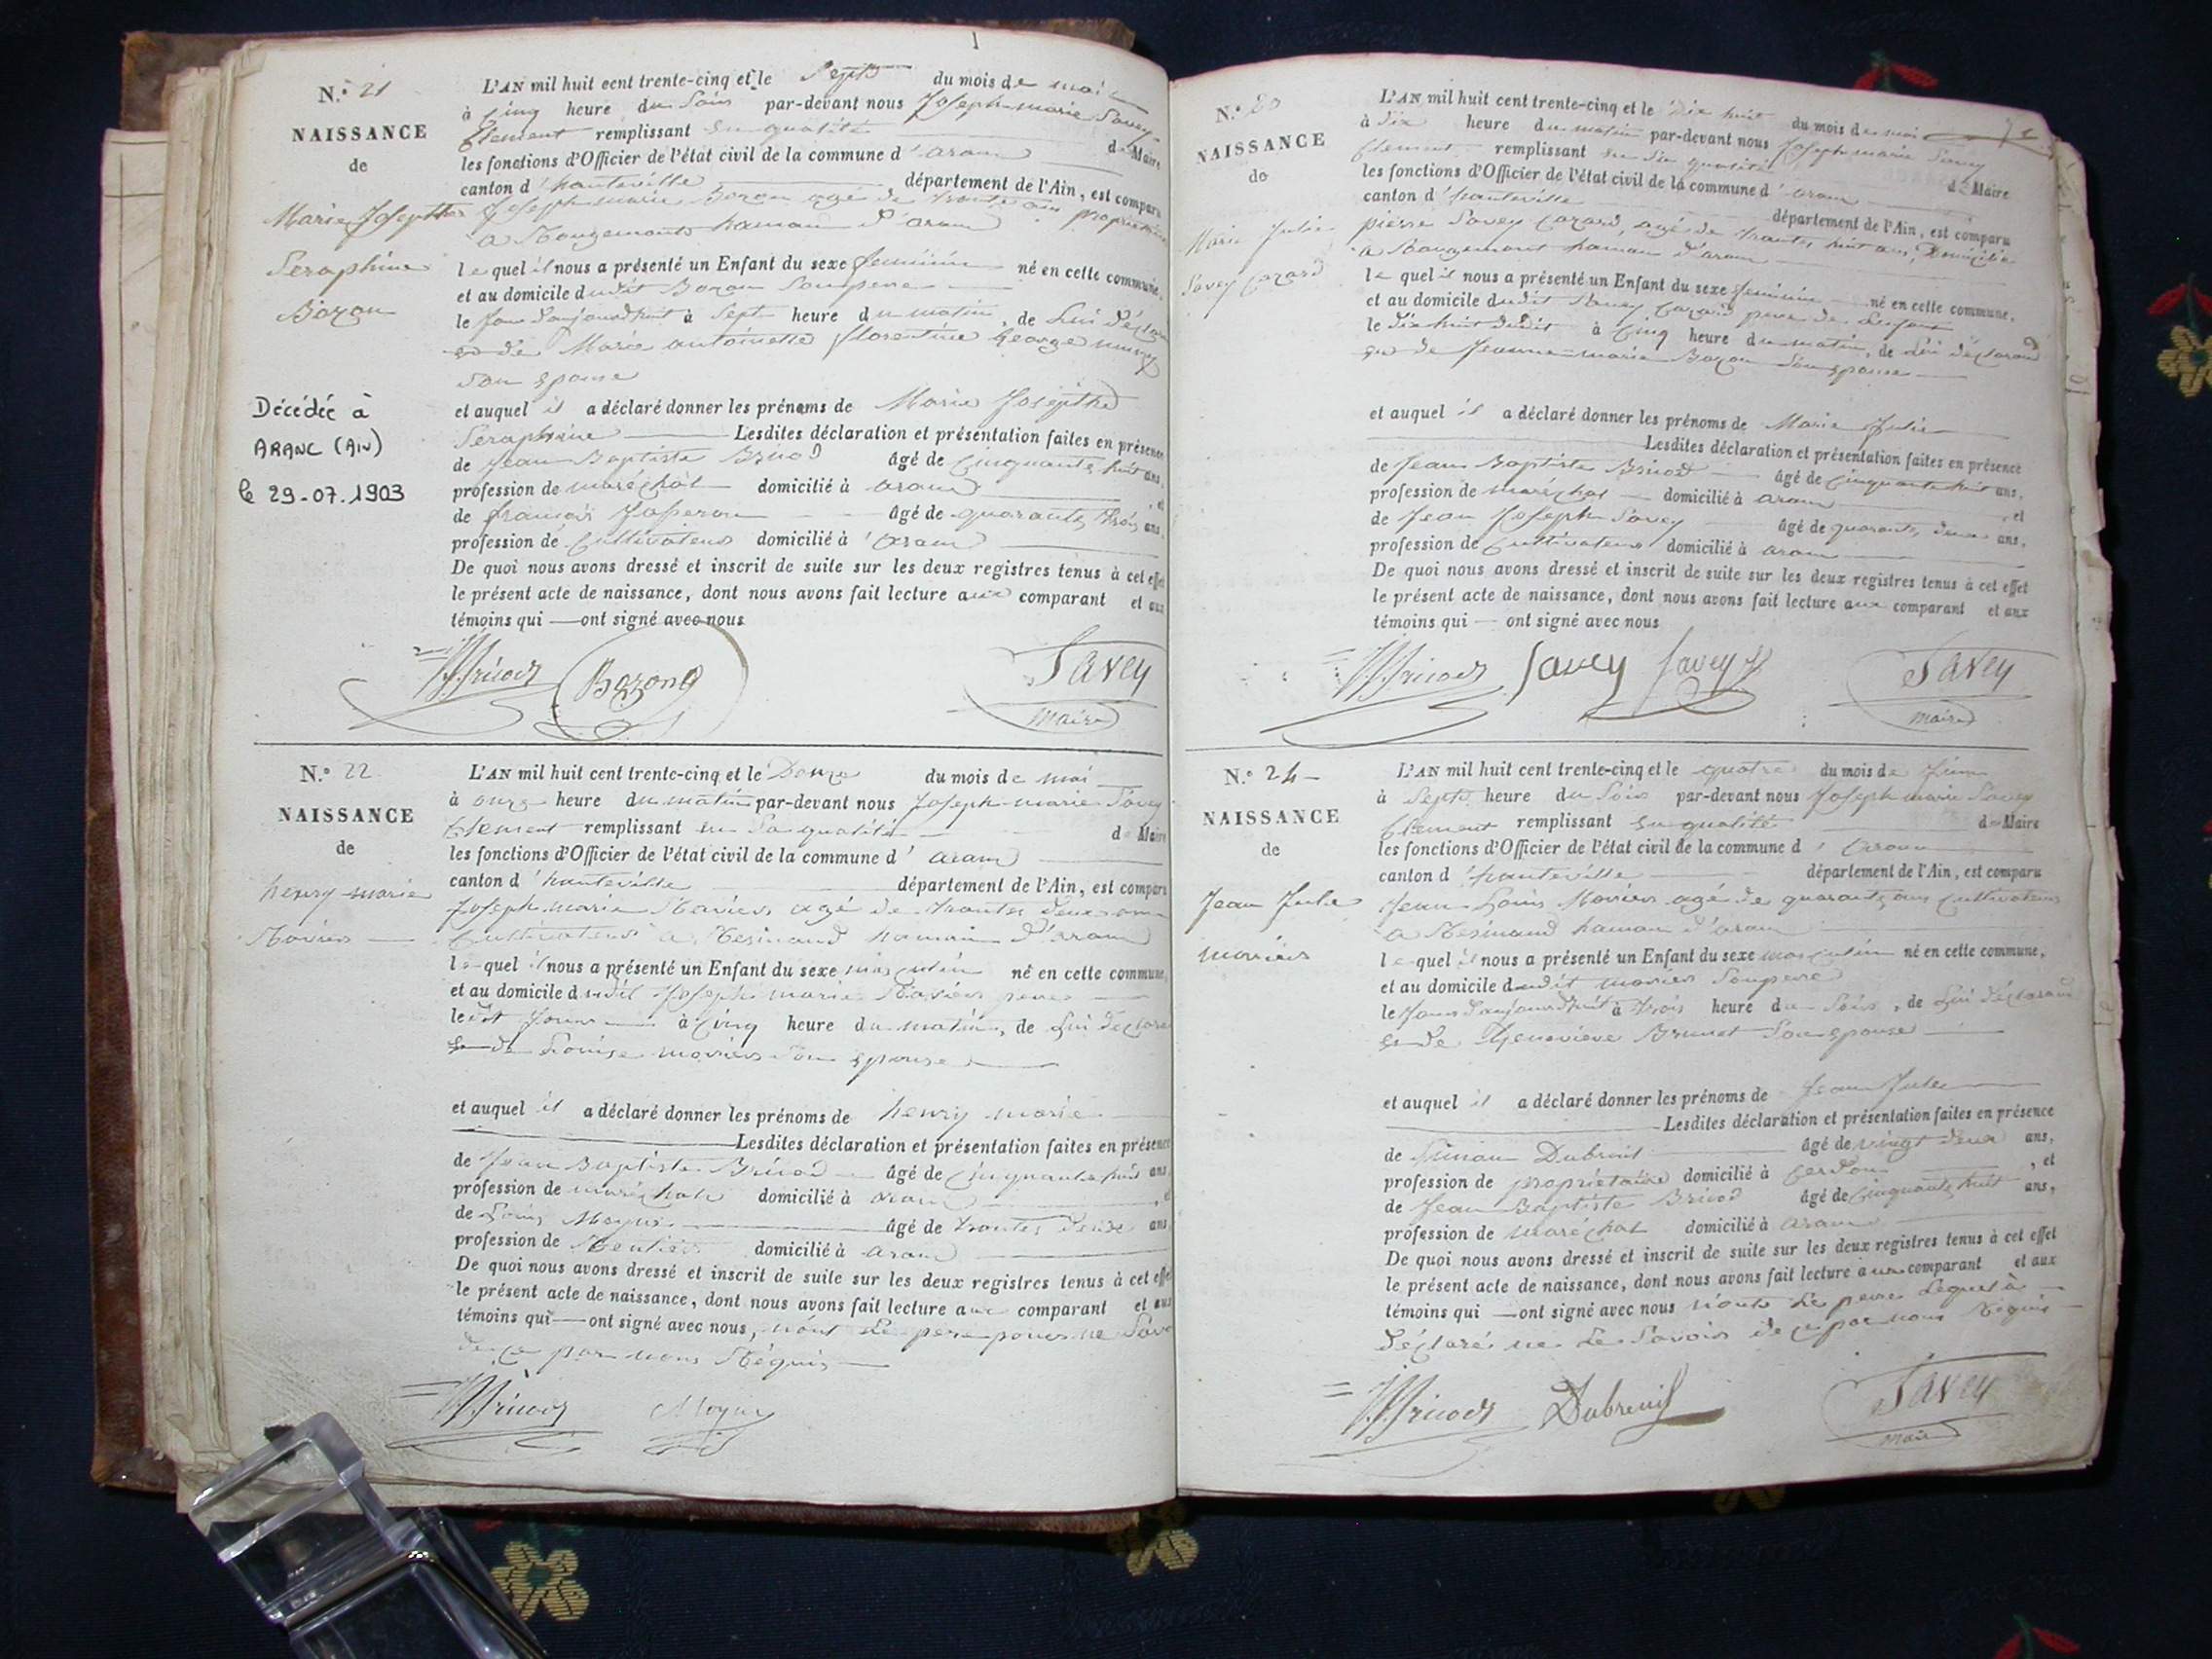 N.° 21
NAISSANCE
de
Marie Josepthe
Seraphine
Bozon
Décédée à
ARANC (AIN)
le 29-07.1903
L'AN mil huit cent trente-cinq et le Sept du mois de mai
à cinq heure du Soir par-devant nous Joseph-marie Savey
Clement remplissant en qualité de Maire
les fonctions d'Officier de l'état civil de la commune d'aranc
canton d'hauteville, département de l'Ain, est comparu
Joseph-marie Bozon agé de trente ans propriétaire
a Rougemont hamau d'aranc
lequel il nous a présenté un Enfant du sexe feminin né en cette commune,
et au domicile dudit Bozon Son pere
le Jour d'aujourdhuit à Sept heure du matin, de Lui déclarant
et de Marie antoinette florentine George
Son epouse
et auquel il a déclaré donner les prénoms de Marie Josepthe
Seraphine Lesdites déclaration et présentation faites en présence
de Jean Baptiste Bricod âgé de cinquante huit ans,
profession de maréchal domicilié à aranc, et
de françois Josperon âgé de quarante trois ans,
profession de Cultivateur domicilié à aranc
De quoi nous avons dressé et inscrit de suite sur les deux registres tenus à cet effet
le présent acte de naissance, dont nous avons fait lecture aux comparant et aux
témoins qui ont signé avec nous
Bricod Bozon Savey
maire
N.° 22
NAISSANCE
de
henry marie
Raviers
L'AN mil huit cent trente-cinq et le Douze du mois de mai
à onze heure du matin par-devant nous Joseph-marie Savey
Clement remplissant en Sa qualité de Maire
les fonctions d'Officier de l'état civil de la commune d'aranc
canton d'hauteville département de l'Ain, est comparu
Joseph marie Raviers agé de trente deux ans
Cultivateur a Resinand hamau d'aranc
lequel il nous a présenté un Enfant du sexe masculin né en cette commune,
et au domicile dudit Joseph marie Raviers pere
ledit Jour à cinq heure du matin, de Lui déclarant
et de Louise moviers Son epouse
et auquel il a déclaré donner les prénoms de henry marie
Lesdites déclaration et présentation faites en présence
de Jean Baptiste Bricod âgé de cinquante huit ans
profession de maréchal domicilié à aranc, et
de Louis Moyne âgé de trente deux ans
profession de Rentier domicilié à aranc
De quoi nous avons dressé et inscrit de suite sur les deux registres tenus à cet effet
le présent acte de naissance, dont nous avons fait lecture aux comparant et aux
témoins qui ont signé avec nous, nont Le pere pour ne Savoir
de ce par nous Réquis
Bricod Moyne
N.°
NAISSANCE
de
Marie Julie
Savey Cazard
L'AN mil huit cent trente-cinq et le Dix huit du mois de mai
à Dix heure du matin par-devant nous Joseph marie Savey
Clement remplissant en Sa qualité de Maire
les fonctions d'Officier de l'état civil de la commune d'aranc
canton d'hauteville département de l'Ain, est comparu
pierre Savey Cazard, agé de trente huit ans, Domicilié
a Rougemont hamau d'aranc
lequel il nous a présenté un Enfant du sexe feminin né en cette commune,
et au domicile dudit Savey Cazard pere de Lenfant
le Dix huit dudit à cinq heure du matin, de Lui déclarant
et de Jeanne-marie Bozon Son epouse
et auquel il a déclaré donner les prénoms de Marie Julie
Lesdites déclaration et présentation faites en présence
de Jean Baptiste Bricod âgé de cinquante huit ans,
profession de maréchal domicilié à aranc, et
de Jean Joseph Savey âgé de quarante deux ans,
profession de Cultivateur domicilié à aranc
De quoi nous avons dressé et inscrit de suite sur les deux registres tenus à cet effet
le présent acte de naissance, dont nous avons fait lecture aux comparant et aux
témoins qui ont signé avec nous
Bricod Savey Savey Savey
maire
N.° 24
NAISSANCE
de
Jean Jule
moviers
L'AN mil huit cent trente-cinq et le quatre du mois de Juin
à Sept heure du Soir par-devant nous Joseph marie Savey
Clement remplissant en qualité de Maire
les fonctions d'Officier de l'état civil de la commune d'aranc
canton d'hauteville département de l'Ain, est comparu
Jean Louis Moviers agé de quarante ans Cultivateur
a Resinand hamau d'aranc
lequel il nous a présenté un Enfant du sexe masculin né en cette commune,
et au domicile dudit moviers Son pere
le Jour d'aujourdhuit à trois heure du Soir, de Lui déclarant
et de Genevieve Brunet Son epouse
et auquel il a déclaré donner les prénoms de Jean Jule
Lesdites déclaration et présentation faites en présence
de Dubreuil âgé de vingt deux ans,
profession de propriétaire domicilié à Cerdon, et
de Jean Baptiste Bricod âgé de cinquante huit ans,
profession de maréchal domicilié à aranc
De quoi nous avons dressé et inscrit de suite sur les deux registres tenus à cet effet
le présent acte de naissance, dont nous avons fait lecture aux comparant et aux
témoins qui ont signé avec nous nonts Le pere Lequel à
Déclaré ne Le Savoir de ce par nous Requis
Bricod Dubreuil Savey
maire